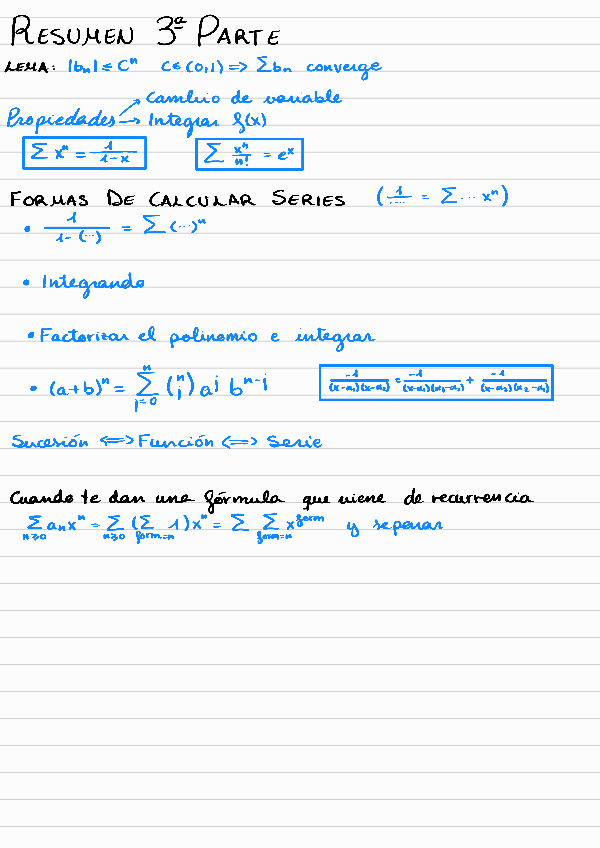 RESUMEN 3ª PARTE
LEMA: |bn| ≤ Cⁿ C ∈ (0,1) => Σbn converge
Cambio de variable
Propiedades → Integrar f(x)
Σ xⁿ = 1/(1-x) Σ xⁿ/n! = eˣ
FORMAS DE CALCULAR SERIES (1/... = Σ ... xⁿ)
• 1/(1-(...)) = Σ (...)ⁿ
• Integrando
• Factorizar el polinomio e integrar
• (a+b)ⁿ = Σ_{j=0}^{n} (n j) a^j b^{n-j} -1/((x-α₁)(x-α₂)) = -1/((x-α₁)(α₁-α₂)) + -1/((x-α₂)(α₂-α₁))
Sucesión <=> Función <=> Serie
Cuando te dan una fórmula que viene de recurrencia
Σ_{n≥0} aₙxⁿ = Σ_{n≥0} (Σ_{form=n} 1)xⁿ = Σ Σ_{form=n} x^{form} y separar